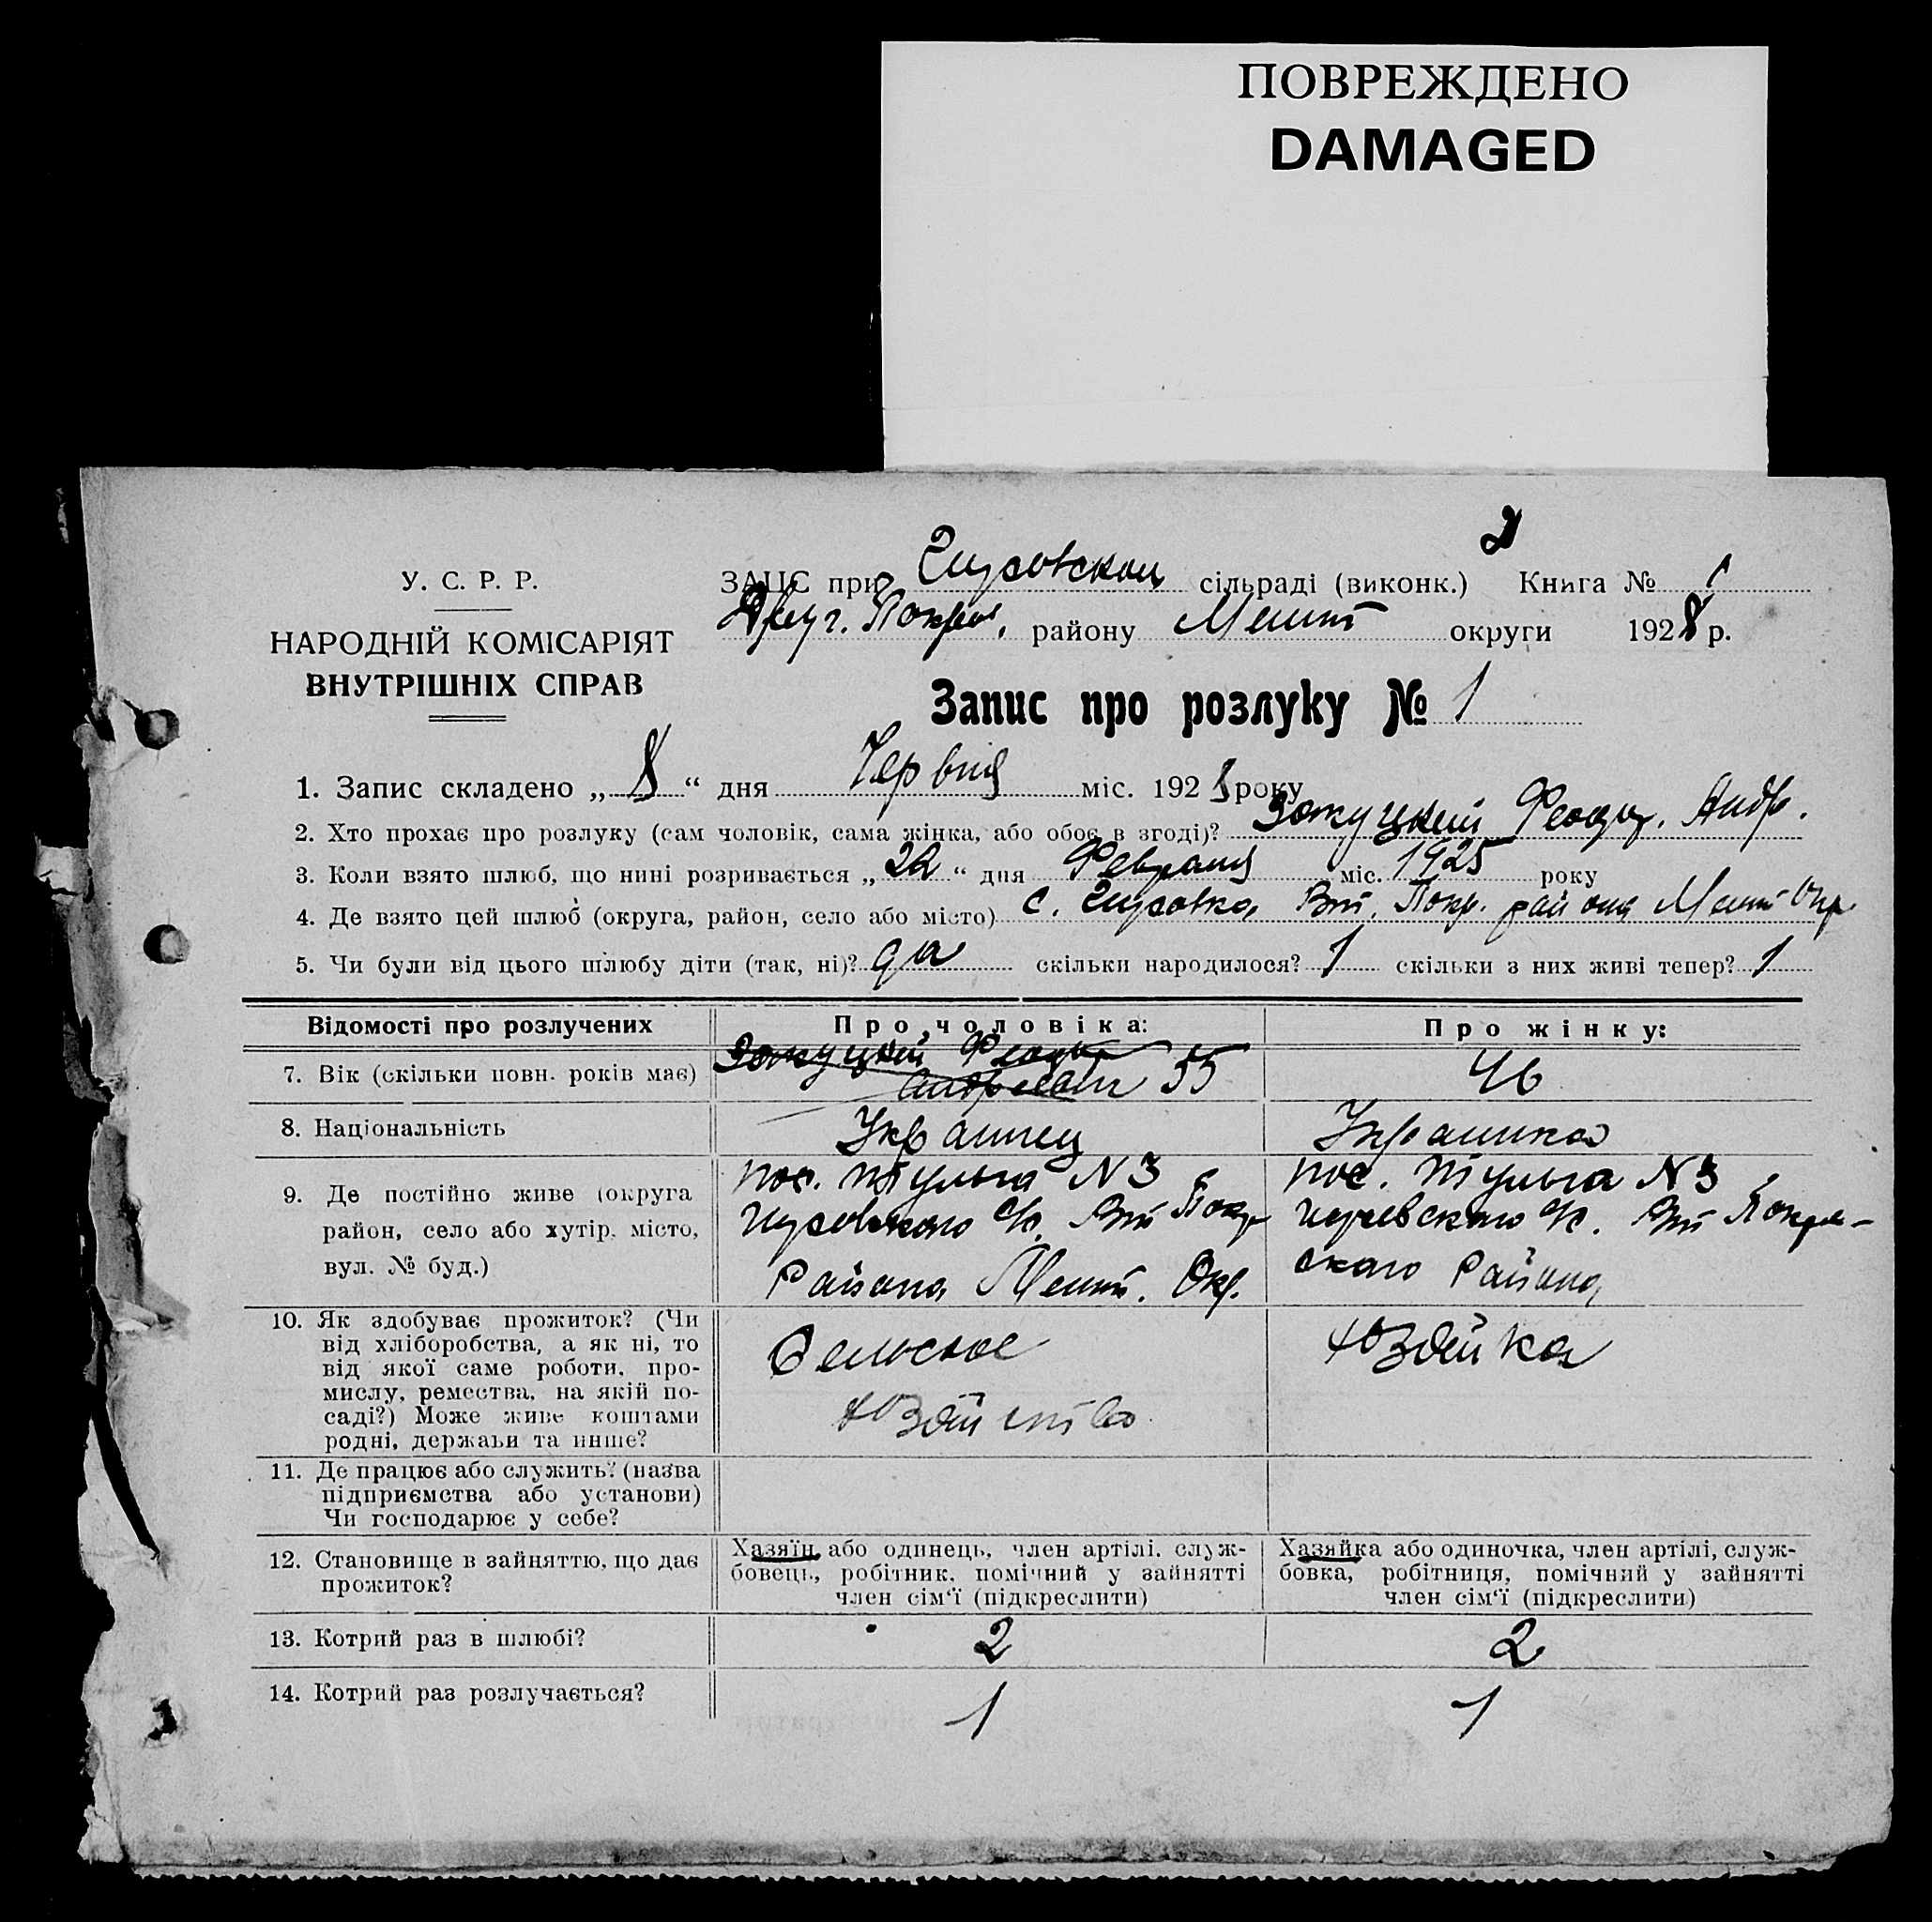 ПОВРЕЖДЕНО
DAMAGED
2
У. С. Р. Р.
НАРОДНІЙ КОМІСАРІЯТ
ВНУТРІШНІХ СПРАВ
ЗАЦС при сільраді (виконк.) Книга № 1
району Мелит округи 1928 р.
Запис про розлуку № 1
1. Запис складено „ 8 “ дня Червня міс. 1928 року
2. Хто прохає про розлуку (сам чоловік, сама жінка, або обоє в згоді)? Андр.
3. Коли взято шлюб, що нині розривається „ 22 “ дня Февраля міс. 1925 року
4. Де взято цей шлюб (округа, район, село або місто) с. Вт. Покр. района Мелит Окр
5. Чи були від цього шлюбу діти (так, ні)? да скільки народилося? 1 скільки з них живі тепер? 1
Відомості про розлучених
Про чоловіка:
Про жінку:
7. Вік (скільки повн. років має)
Андреевич 55
46
8. Національність
Украинец
Украинка
9. Де постійно живе (округа
район, село або хутір, місто,
вул. № буд.)
пос. N 3
Вт Покр
Района Мелит. Окр.
пос. N 3
Вт Покров-
ского Района
10. Як здобуває прожиток? (Чи
від хліборобства, а як ні, то
від якої саме роботи, про-
мислу, ремества, на якій по-
саді?) Може живе коштами
родні, держави та инше?
Сельское
хозяйство
хозяйка
11. Де працює або служить? (назва
підприємства або установи)
Чи господарює у себе?
12. Становище в зайняттю, що дає
прожиток?
Хазяїн, або одинець, член артілі, служ-
бовець, робітник, помічний у зайнятті
член сім'ї (підкреслити)
Хазяйка або одиночка, член артілі, служ-
бовка, робітниця, помічний у зайнятті
член сім'ї (підкреслити)
13. Котрий раз в шлюбі?
2
2
14. Котрий раз розлучається?
1
1